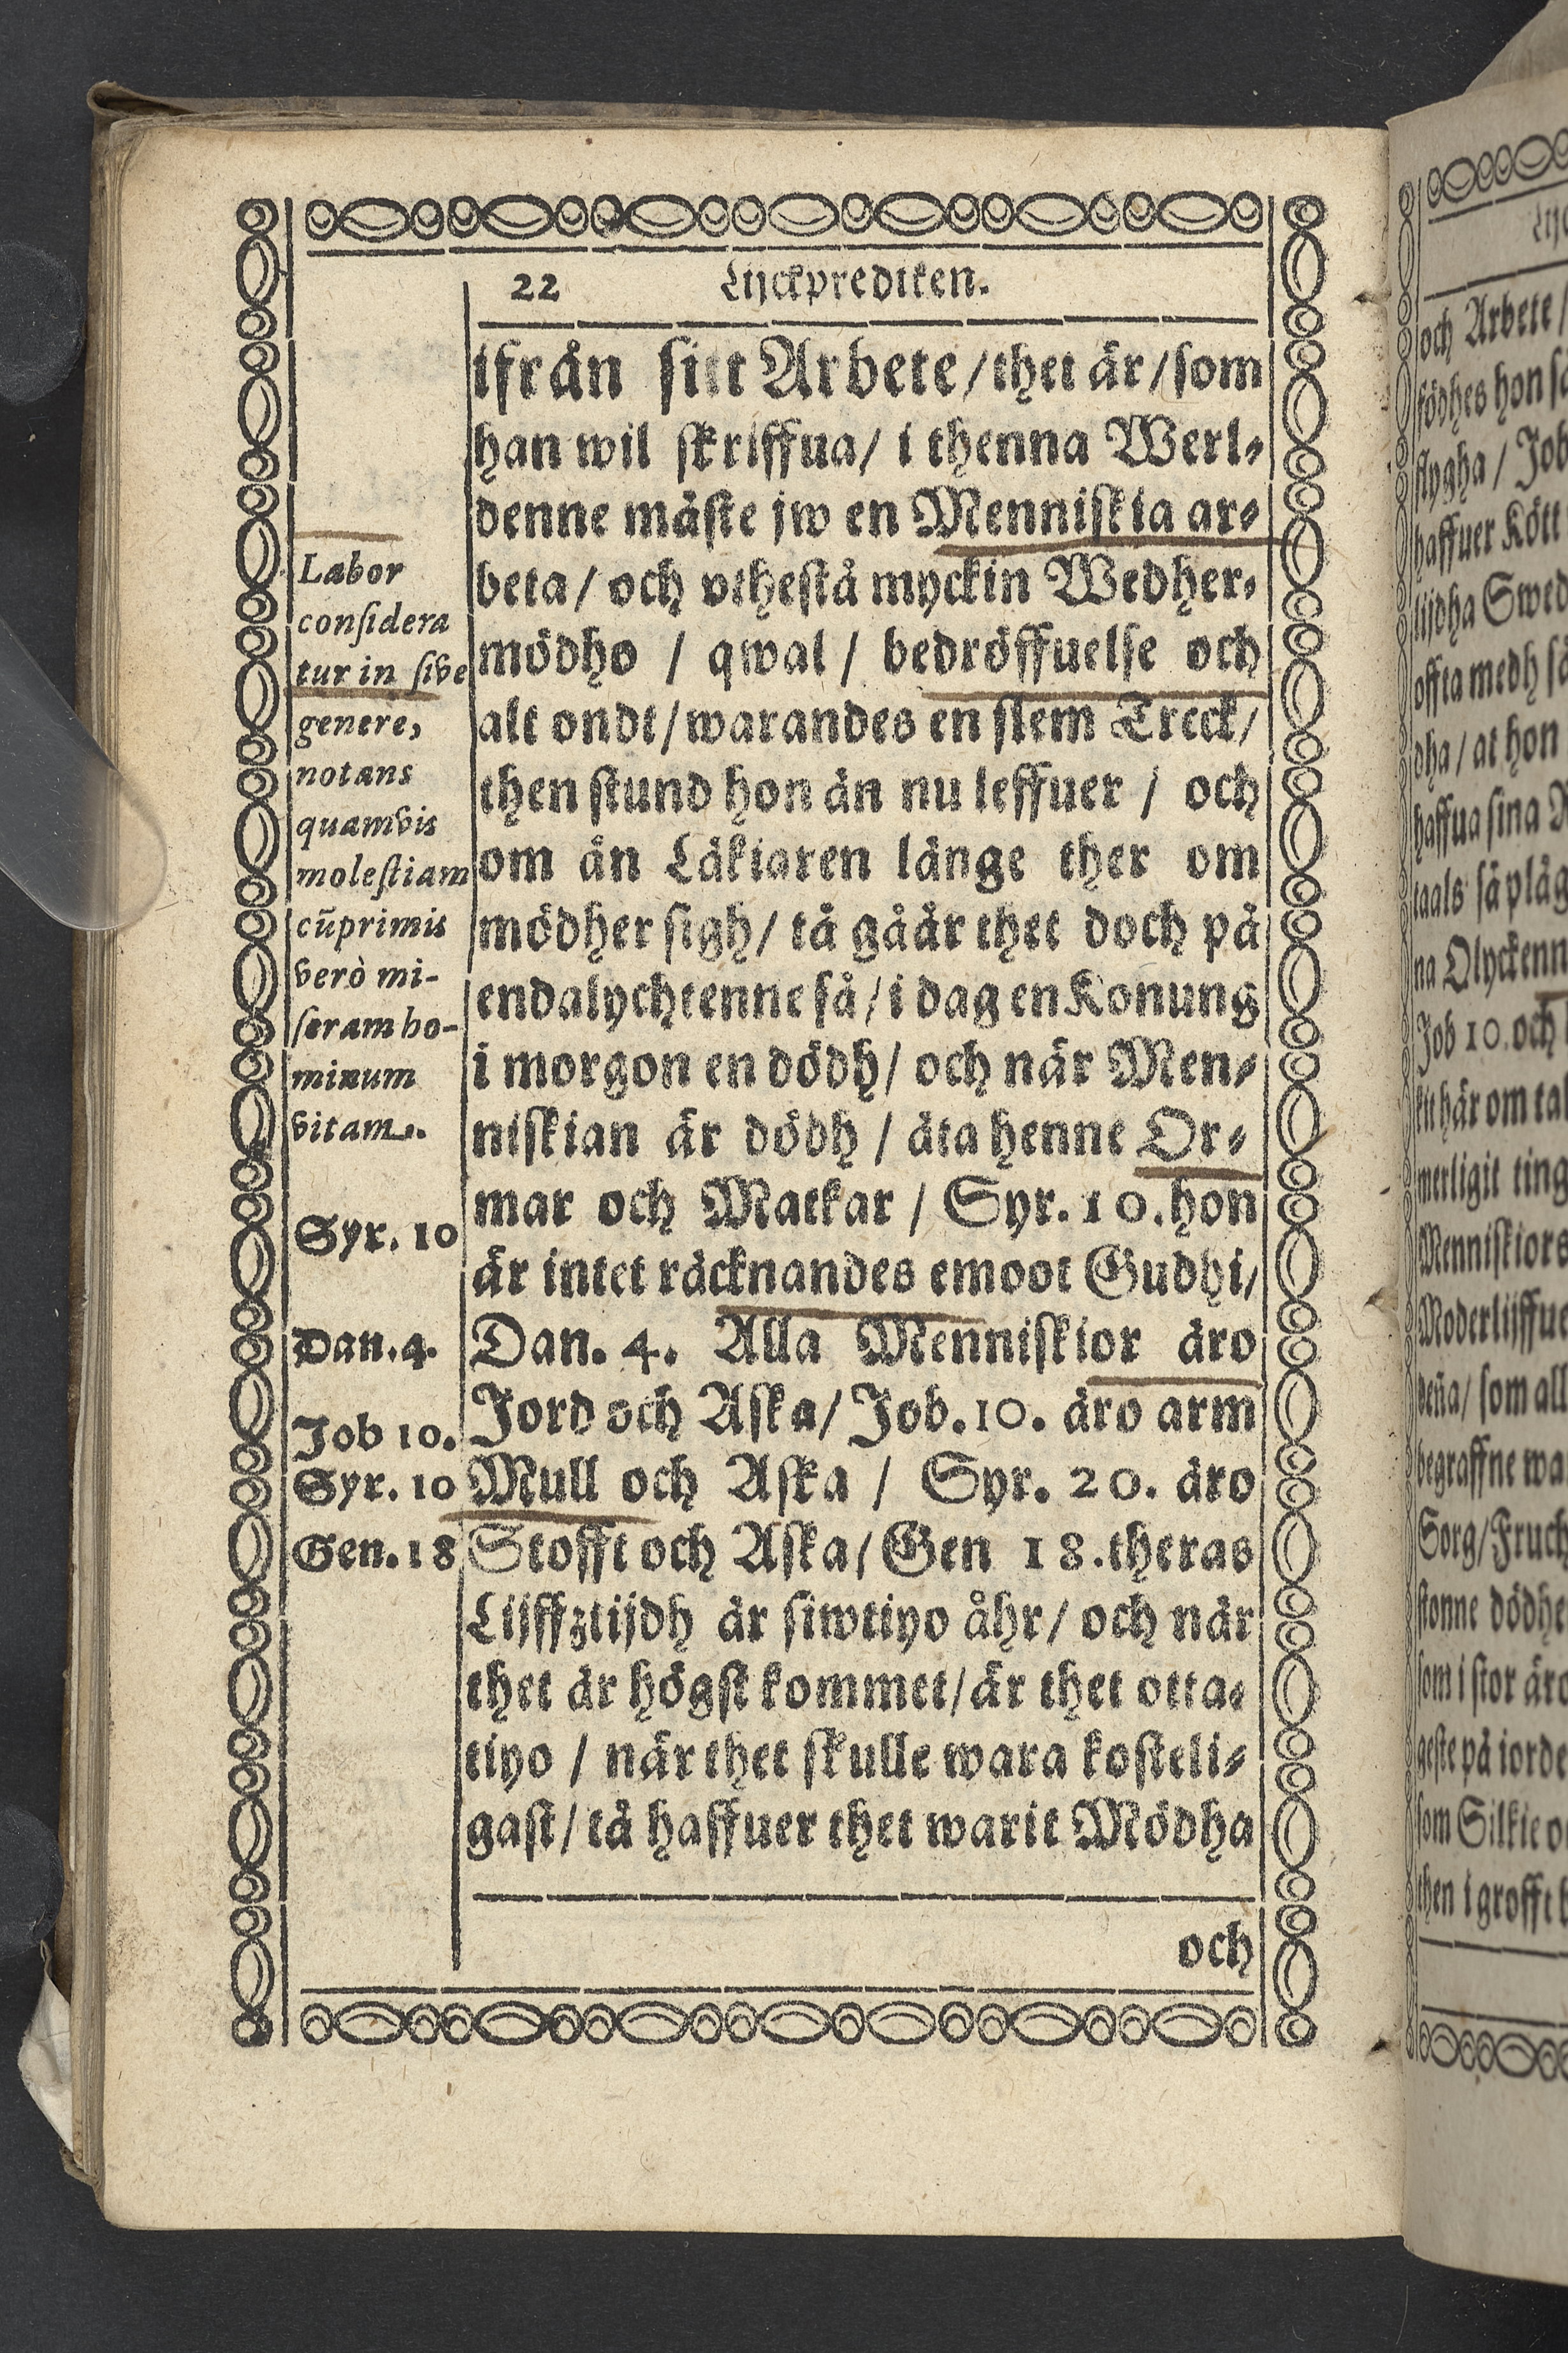 22 Lijckprediken.
ifrån sitt Arbete/thet är/som
han wil skriffua/ i thenna Werl-
denne mäste jw en Menniskia ar-
beta/ och vthestå myckin Wedher-
mödho / qwal / bedröffuelse och
alt ondt/warandes en slem Treck/
then stund hon än nu leffuer / och
om än Läkiaren länge ther om
mödher sigh/ tå gåår thet doch på
endalychtenne så/i dag en Konung
i morgon en dödh/ och när Men-
niskian är dödh / äta henne Or-
mar och Matkar / Syr. 10. hon
är intet räcknandes emoot Gudhi/
Dan. 4. Alla Menniskior äro
Jord och Aska/ Job. 10. äro arm
Mull och Aska / Syr. 20. äro
Stofft och Aska/ Gen 18. theras
Lijffztijdh är siwtiyo åhr/ och när
thet är högst kommet/är thet otta-
tiyo / när thet skulle wara kosteli-
gast/ tå haffuer thet warit Mödha
och
Labor
considera
tur in sive
genere,
notans
quamvis
molestiam
cũprimis
verò mi-
seram ho-
minum
vitam.
Syr. 10
Dan. 4.
Job 10.
Syr. 10
Gen. 18
och Arbete/
födhes hon
flygha / Job
haffuer Kött
lijdha Swed
offta medh
dha/ at hon
haffua sina
taals så plåg
na Olyckenn
Job 10. och
kit här om tal
merligit ting
Menniskiors
Moderlijffue
deña/ som all
begraffne wa
Sorg/Fruch
stonne dödhe
som i stor äro
geste på iorde
som Silkie o
then i grofft